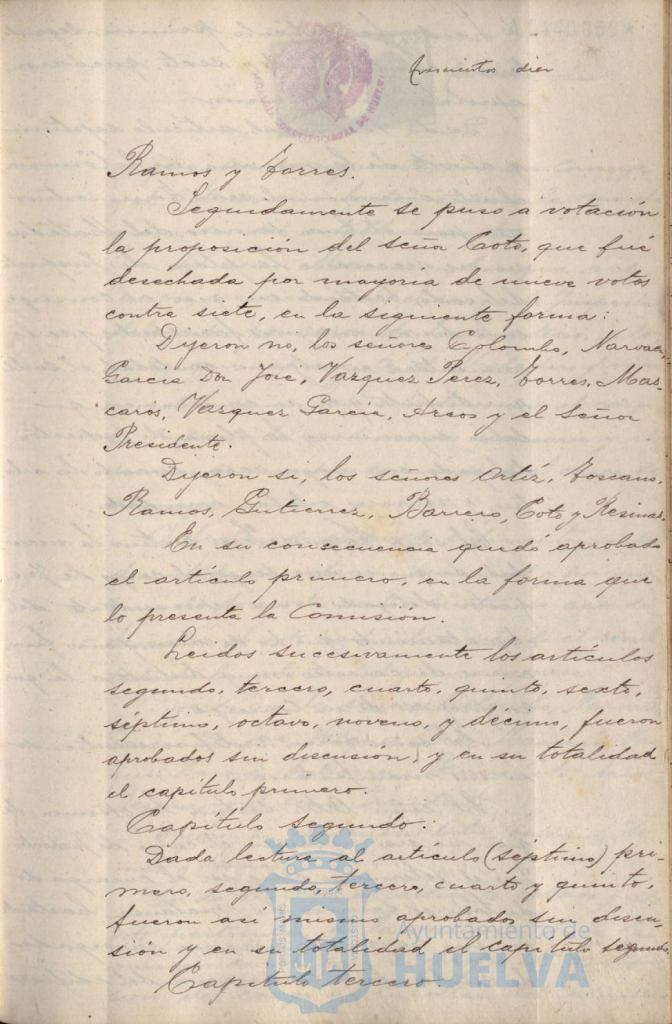 trescientos diez
ALCALDIA CONSTITUCIONAL DE HUELVA
Ramos y Torres.
Seguidamente se puso a votación
la proposición del señor Coto, que fué
desechada por mayoria de nueve votos
contra siete, en la siguiente forma:
Dijeron no, los señores Colombo, Narvaez,
Garcia Don José, Vazquez Perez, Torres, Mas-
carós, Vazquez Garcia, Arcos y el Señor
Presidente.
Dijeron si, los señores Ortiz, Toscano,
Ramos, Gutierrez, Barrero, Coto y Resinas.
En su consecuencia quedó aprobado
el artículo primero, en la forma que
lo presenta la Comisión.
Leidos sucesivamente los artículos
segundo, tercero, cuarto, quinto, sexto,
séptimo, octavo, noveno, y décimo, fueron
aprobados sin discusión, y en su totalidad
el capítulo primero.
Capítulo segundo:
Dada lectura al artículo (séptimo) pri-
mero, segundo, tercero, cuarto y quinto,
fueron asi mismo aprobados sin discu-
sión y en su totalidad el capítulo segundo.
Capítulo tercero.
Ayuntamiento de
HUELVA